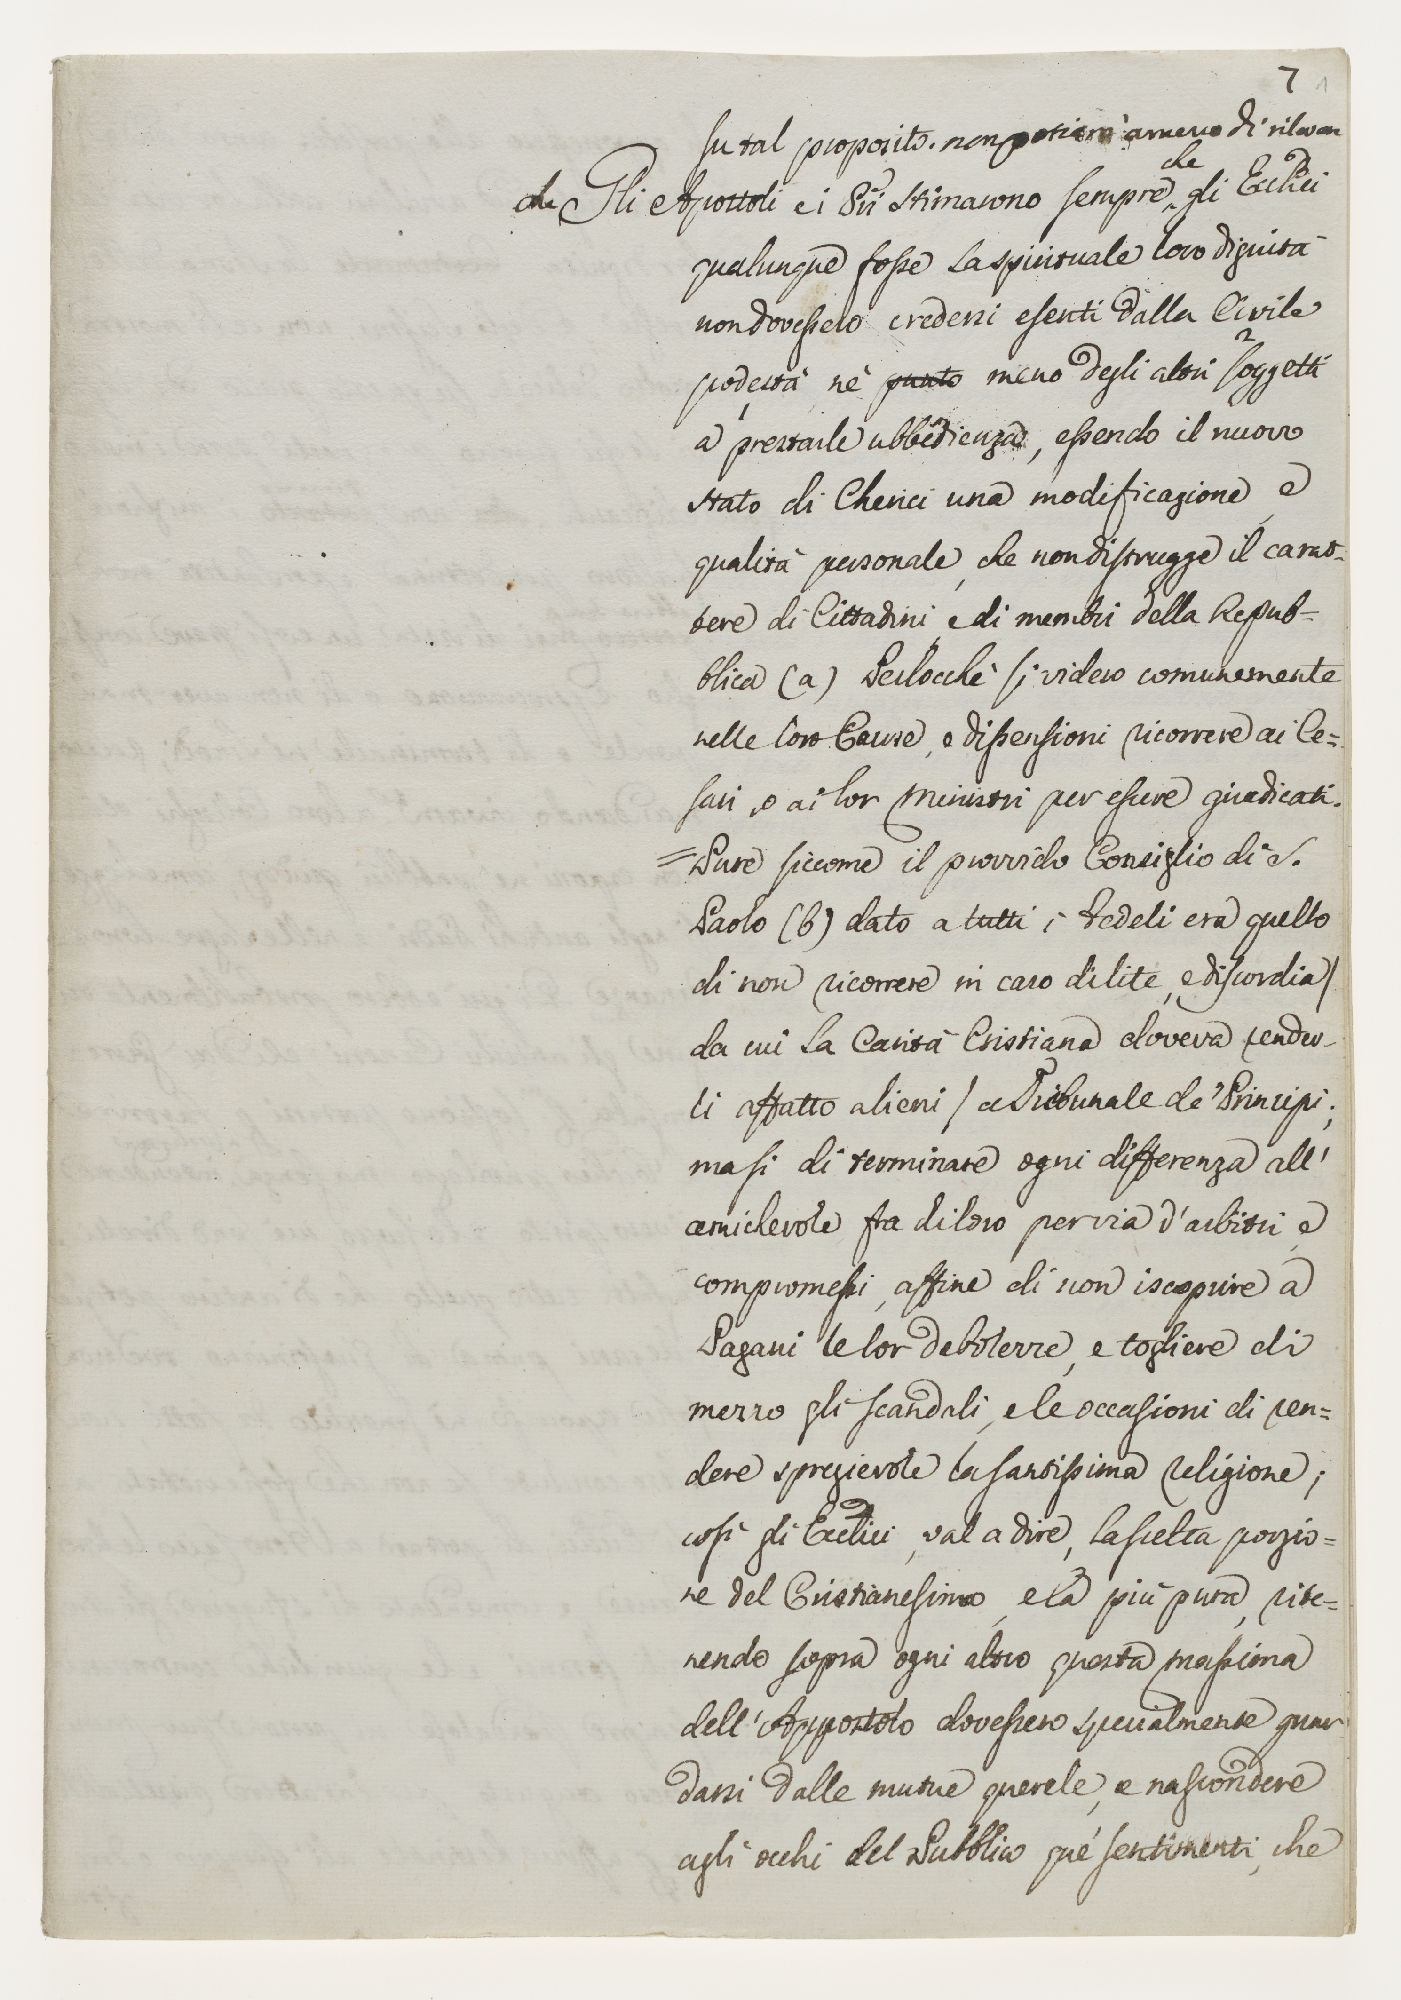 7
su tal proposito. non potiamo a meno di rilevare
che Gli Apostoli e i PP stimarono sempre, che gli Ecclici
qualunque fosse la spirituale loro dignità
non dovessero credersi esenti dalla Civile
podestà nè punto meno degli altri soggetti
a prestarle ubbedienza, essendo il nuovo
stato di Cherici una modificazione, e
qualità personale, che non distrugge il carat-
tere di Cittadini, e di membri della Repub=
blica (a) Perlocchè si videro comunemente
nelle loro Cause, e dissensioni ricorrere ai Ce=
sari, o ai lor Ministri per essere giudicati.
= Pure siccome il provvido Consiglio di S.
Paolo (b) dato a tutti i Fedeli era quello
di non ricorrere in caso di lite, e discordia /
da cui la Carità Cristiana doveva render-
li affatto alieni / a Tribunale de' Principi;
ma si di terminare ogni differenza all'
amichevole fra di loro per via d'arbitri, e
compromessi, affine di non iscoprire a
Pagani le lor debolezze, e togliere di
mezzo gli scandali, e le occasioni di ren=
dere spregievole la santissima religione;
così gli Ecclici, val a dire, la scelta porzio=
ne del Cristianesimo, e la più pura, rite=
nendo sopra ogni altro questa massima
dell'Appostolo dovessero specialmente guar
darsi dalle mutue querele, e nascondere
agli occhi del Pubblico que' sentimenti, che